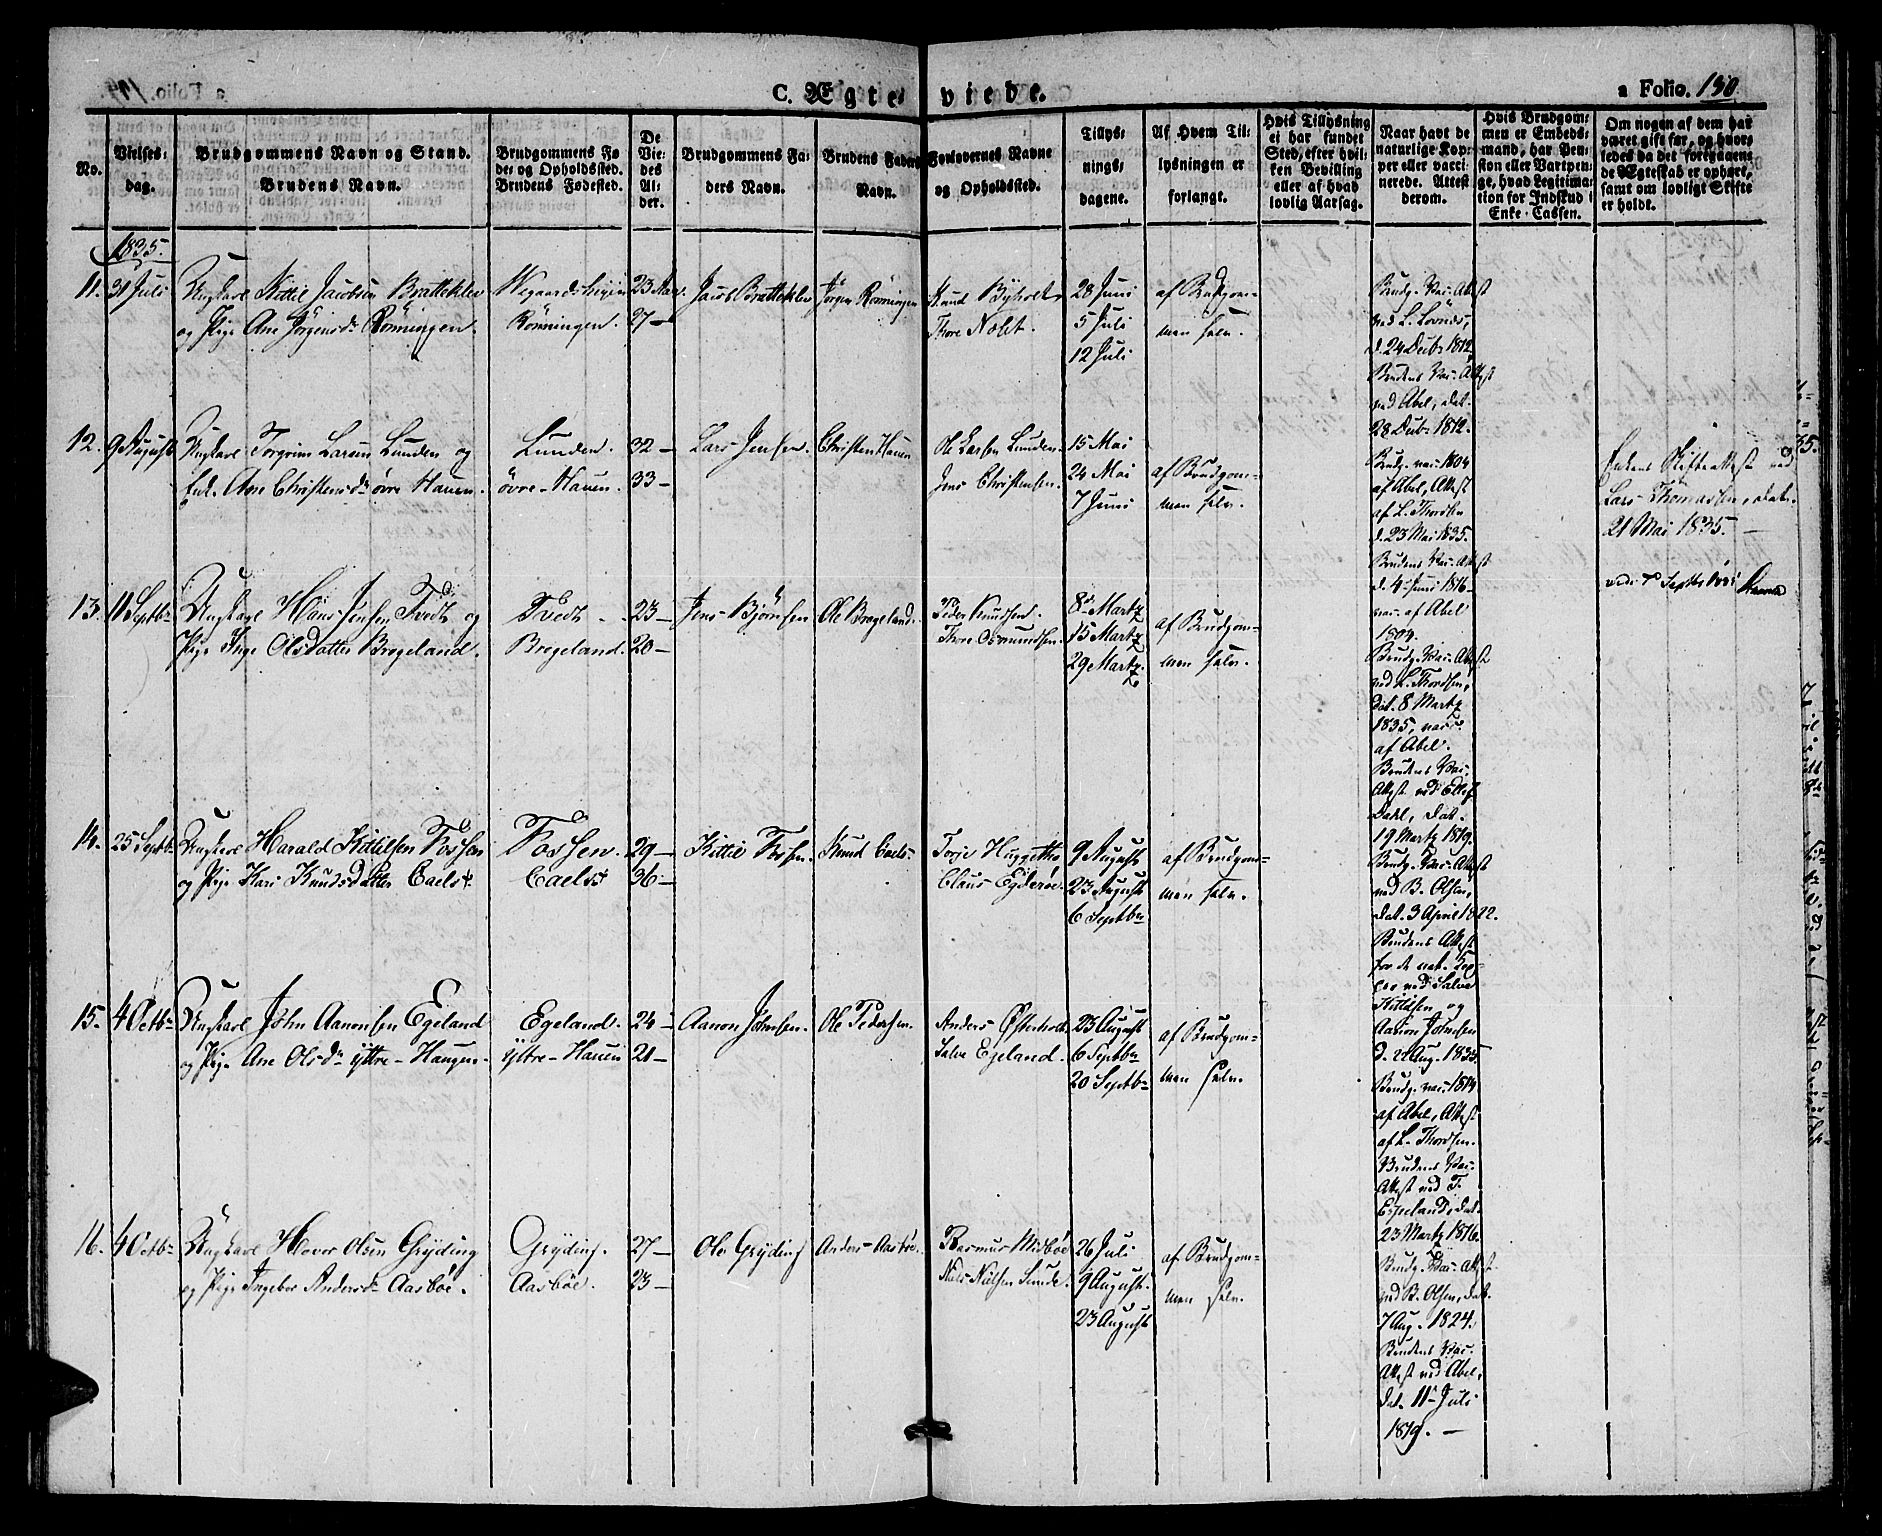 C. Ægteviede.
a Folio. 150
No.
Vielses-
dag.
Brudgommens Navn og Stand.
Brudens Navn.
Brudgommens Fø
de- og Opholdssted.
Brudens Fødested.
De
Vie-
des
Al-
der.
Brudgommens Fa-
ders Navn.
Brudens Faders
Navn.
Forlovernes Navne
og Opholdssted.
Tillys-
nings-
dagene.
Af Hvem Til-
lysningen er
forlangt.
Hvis Tillysning
ei har fundet
Sted, efter hvil-
ken Bevilling
eller af hvad
lovlig Aarsag.
Naar havt de
naturlige Kop-
per eller vacci-
nerede. Attest
derom.
Hvis Brudgom-
men er Embeds-
mand, har Pen-
sion eller Vartpen-
ge, hvad Legitima-
tion for Indskud i
Enke-Cassen.
Om nogen af dem har
været gift før, og hvor-
ledes da det foregaaen-
de Ægteskab er ophørt,
samt om lovligt Skifte
er holdt.
1835.
11. 31 Juli
Ungkarl Kittil Jacobsen Bratteklev
og Pige Ane Jörgensdr Rönningen.
Wegaardsheyen
Rönningen.
23 Aar.
27 —
Jacob Bratteklev
Jörgen Rönningen
Knud Byholt
Thore Nobst.
28 Juni
5 Juli
12 Juli
af Brudgom-
men selv.
Brudg. Vac. Attest
ved L. Lövnæs,
d. 24 Decbr 1812
Brudens Vac. Attest
ved Abel, dat.
28 Decbr 1812.
12. 9 August
Ungkarl Torgrim Larsen Lunden og
Enk. Ane Christensdr övre Hauen.
Lunden.
övre-Hauen.
32 —
33 —
Lars Jensen.
Christen Hauen
Ole Larsen Lunden.
Jens Christensen.
15 Mai
24 Mai
7 Juni
af Brudgom-
men selv.
Brudg. vac. 1804
af Abel, Attest
af L. Thordsen
d. 23 Mai 1835.
Brudens Vac. Attest
d. 4 Juni 1816
vac. af Abel
1804.
Enkens Skifteattest ved
Lars Thomassen, dat.
21 Mai 1835. —
13. 11 Septbr
Ungkarl Hans Jensen Tvedt og
Pige Inge Olsdatter Brogeland.
Tvedt
Brogeland.
23 —
20 —
Jens Björnsen
Ole Brogeland.
Peder Knudsen.
Thore Osmundsen.
8 Martz
15 Martz
29 Martz.
af Brudgom-
men selv.
Brudg. Vac. Attest
ved L. Thordsen,
dat. 8 Martz
1835, vacc.
af Abel.
Brudens Vac.
Attest ved Ellef
Dahl, dat.
19 Martz 1819.
14. 25 Septbr
Ungkarl Harald Kittilsen Fossen
og Pige Kari Knudsdatter Eaelst.
Fossen.
Eaelst
29 —
36 —
Kittil Fossen.
Knud Eaels-
Torje Huggetho
Claus Egderöe.
9 August
23 August
6 Septbr
af Brudgom-
men selv.
Brudg. Vac. Attest
ved B. Olsen,
dat. 3 April 1822.
Brudens Attest
for de nat. Kop-
per ved Salve
Kittilsen og
Aanon Johnsen
d. 2 Aug. 1835
15. 4 Octbr
Ungkarl John Aanonsen Egeland
og Pige Ane Olsdr yttre-Haugen.
Egeland.
Yttre-Hauen
24 —
21 —
Aanon Johnsen.
Ole Pedersen.
Anders Österholt
Salve Egeland.
23 August
6 Septbr
20 Septbr
af Brudgom-
men selv.
Brudg. vac. 1814
af Abel, Attest
af L. Thordsen.
Brudens Vac.
Attest ved T.
Espeland, dat.
23 Martz 1816.
16. 4 Octbr
Ungkarl Hover Olsen Gryding
og Pige Ingebor Andersdr Aasböe.
Gryding.
Aasböe.
27 —
23 —
Ole Gryding
Anders Aasböe.
Rasmus Midböe
Niels Nielsen Lunde.
26 Juli
9 August.
23 August
af Brudgom-
men selv.
Brudg. Vac. Attest
ved B. Olsen, dat.
7 Aug. 1824.
Brudens Vac.
Attest ved Abel,
dat. 11 Juli
1819. —